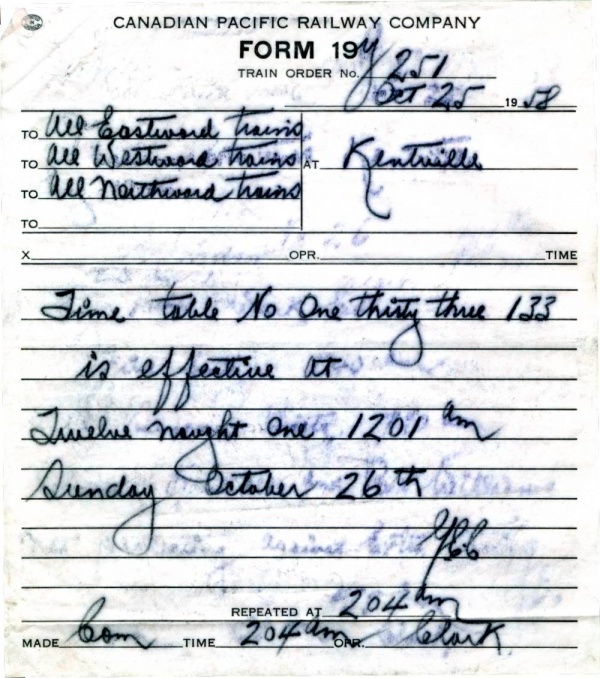 CANADIAN PACIFIC RAILWAY COMPANY
FORM 19Y
TRAIN ORDER No. 251
Oct 25 1958
TO All Eastward trains
TO All Westward trains AT Kentville
TO All Northward trains
TO
X OPR. TIME
Time table No One thirty three 133
is effective at
Twelve nought one 1201 am
Sunday October 26th
REPEATED AT 204 am
MADE Com TIME 204 am OPR. Clark